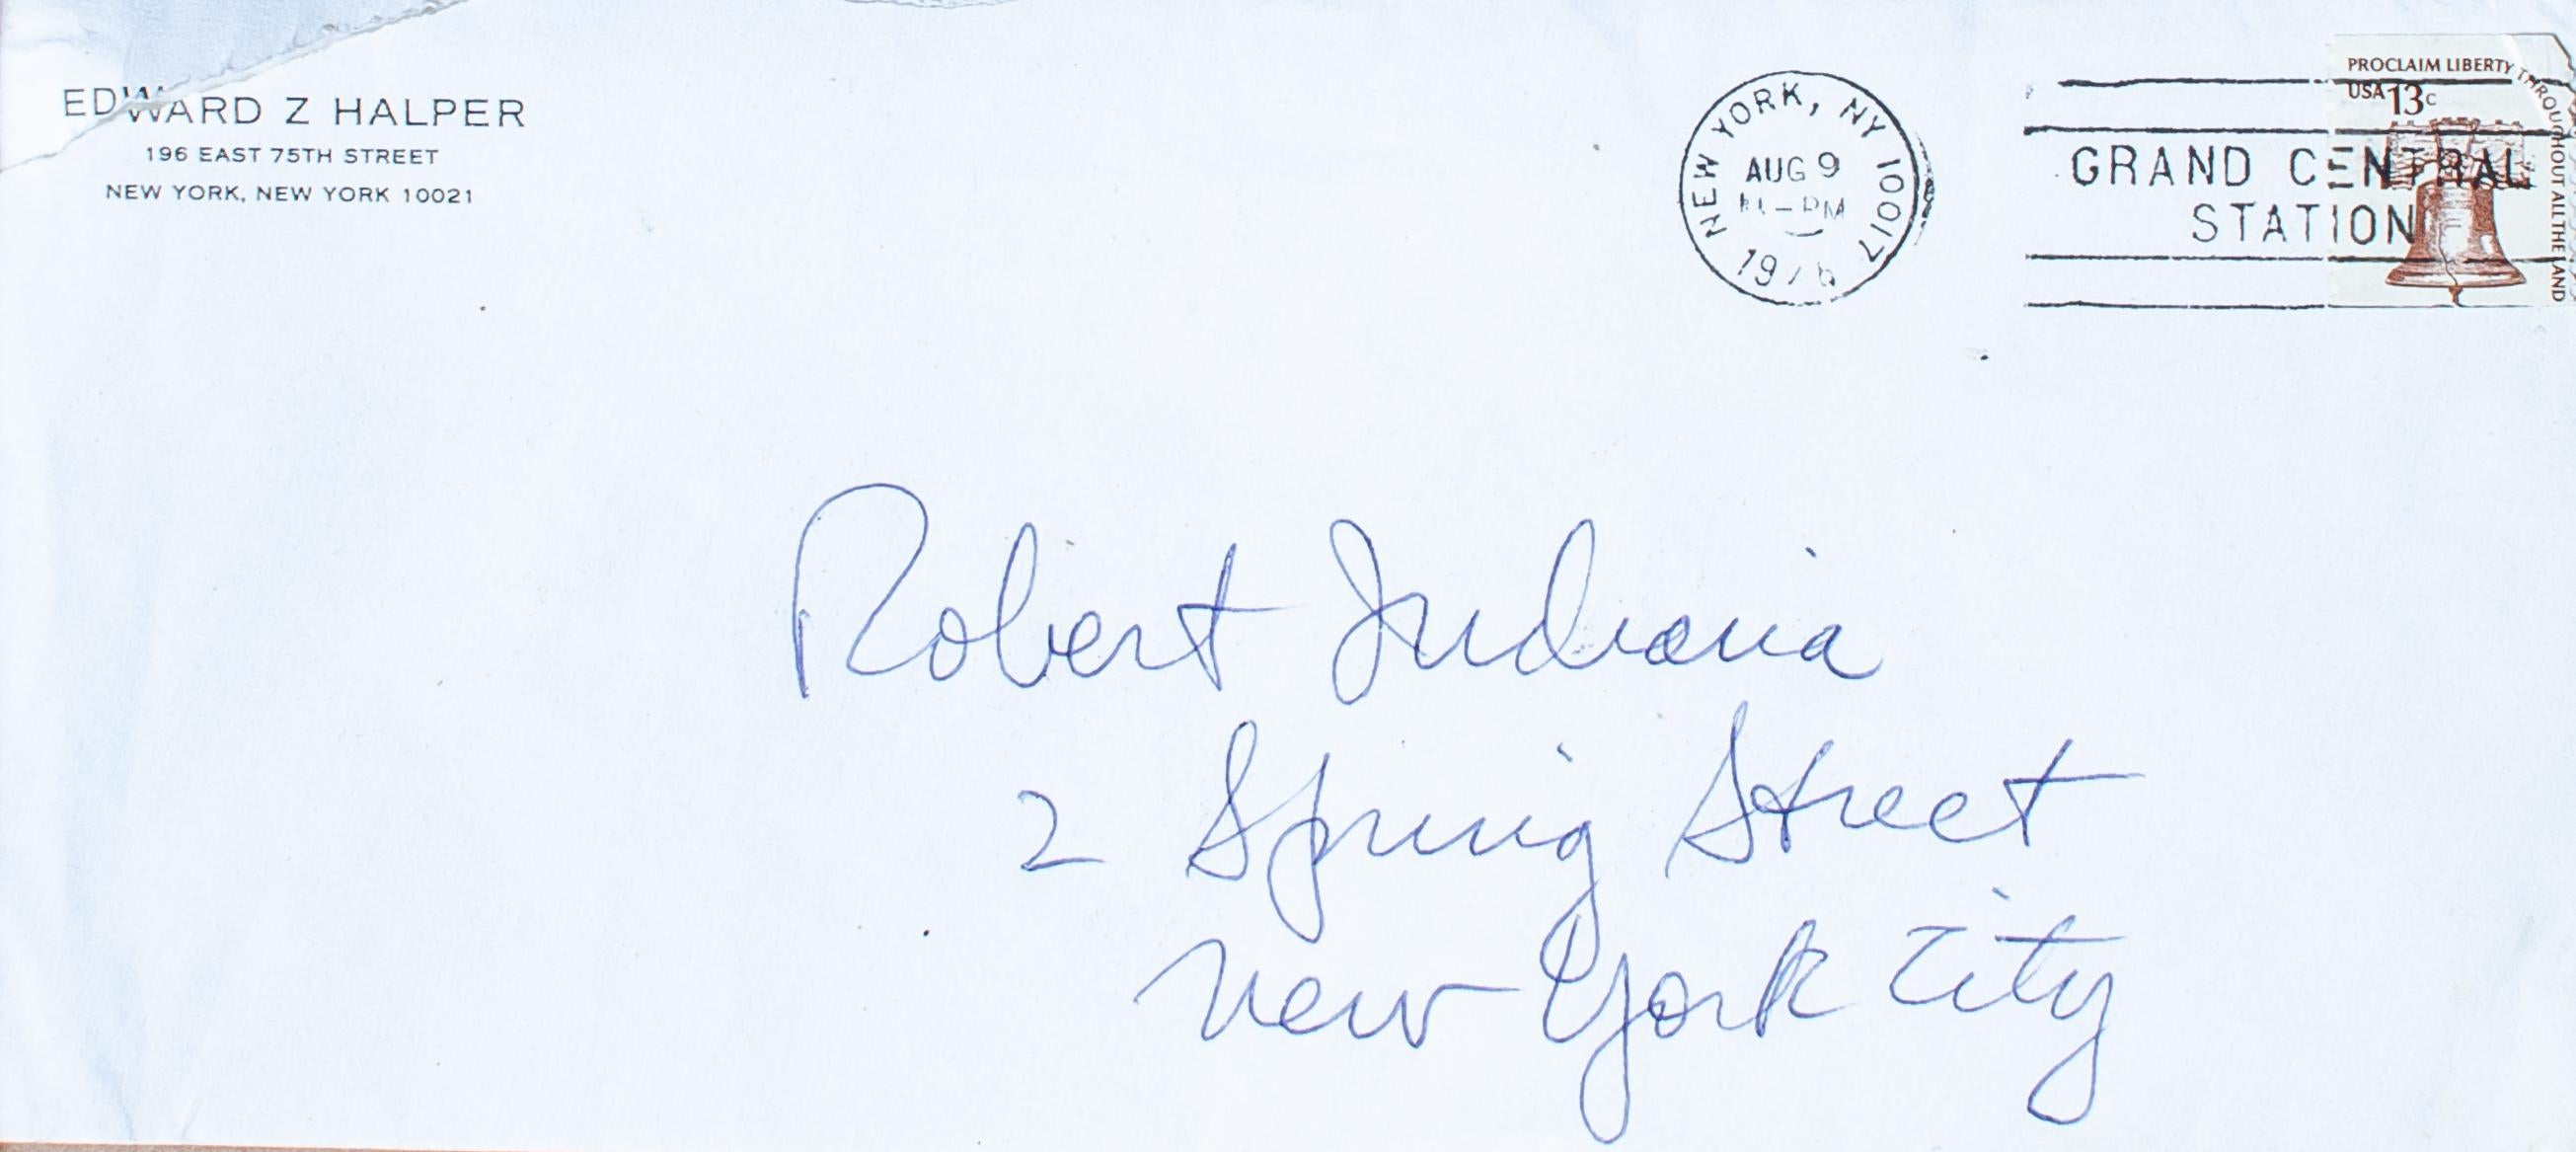 EDWARD Z HALPER
196 EAST 75TH STREET
NEW YORK, NEW YORK 10021
NEW YORK, NY 10017
AUG 9
PM
1976
GRAND CENTRAL
STATION
PROCLAIM LIBERTY THROUGHOUT ALL THE LAND
USA 13c
Robert Indiana
2 Spring Street
New York City